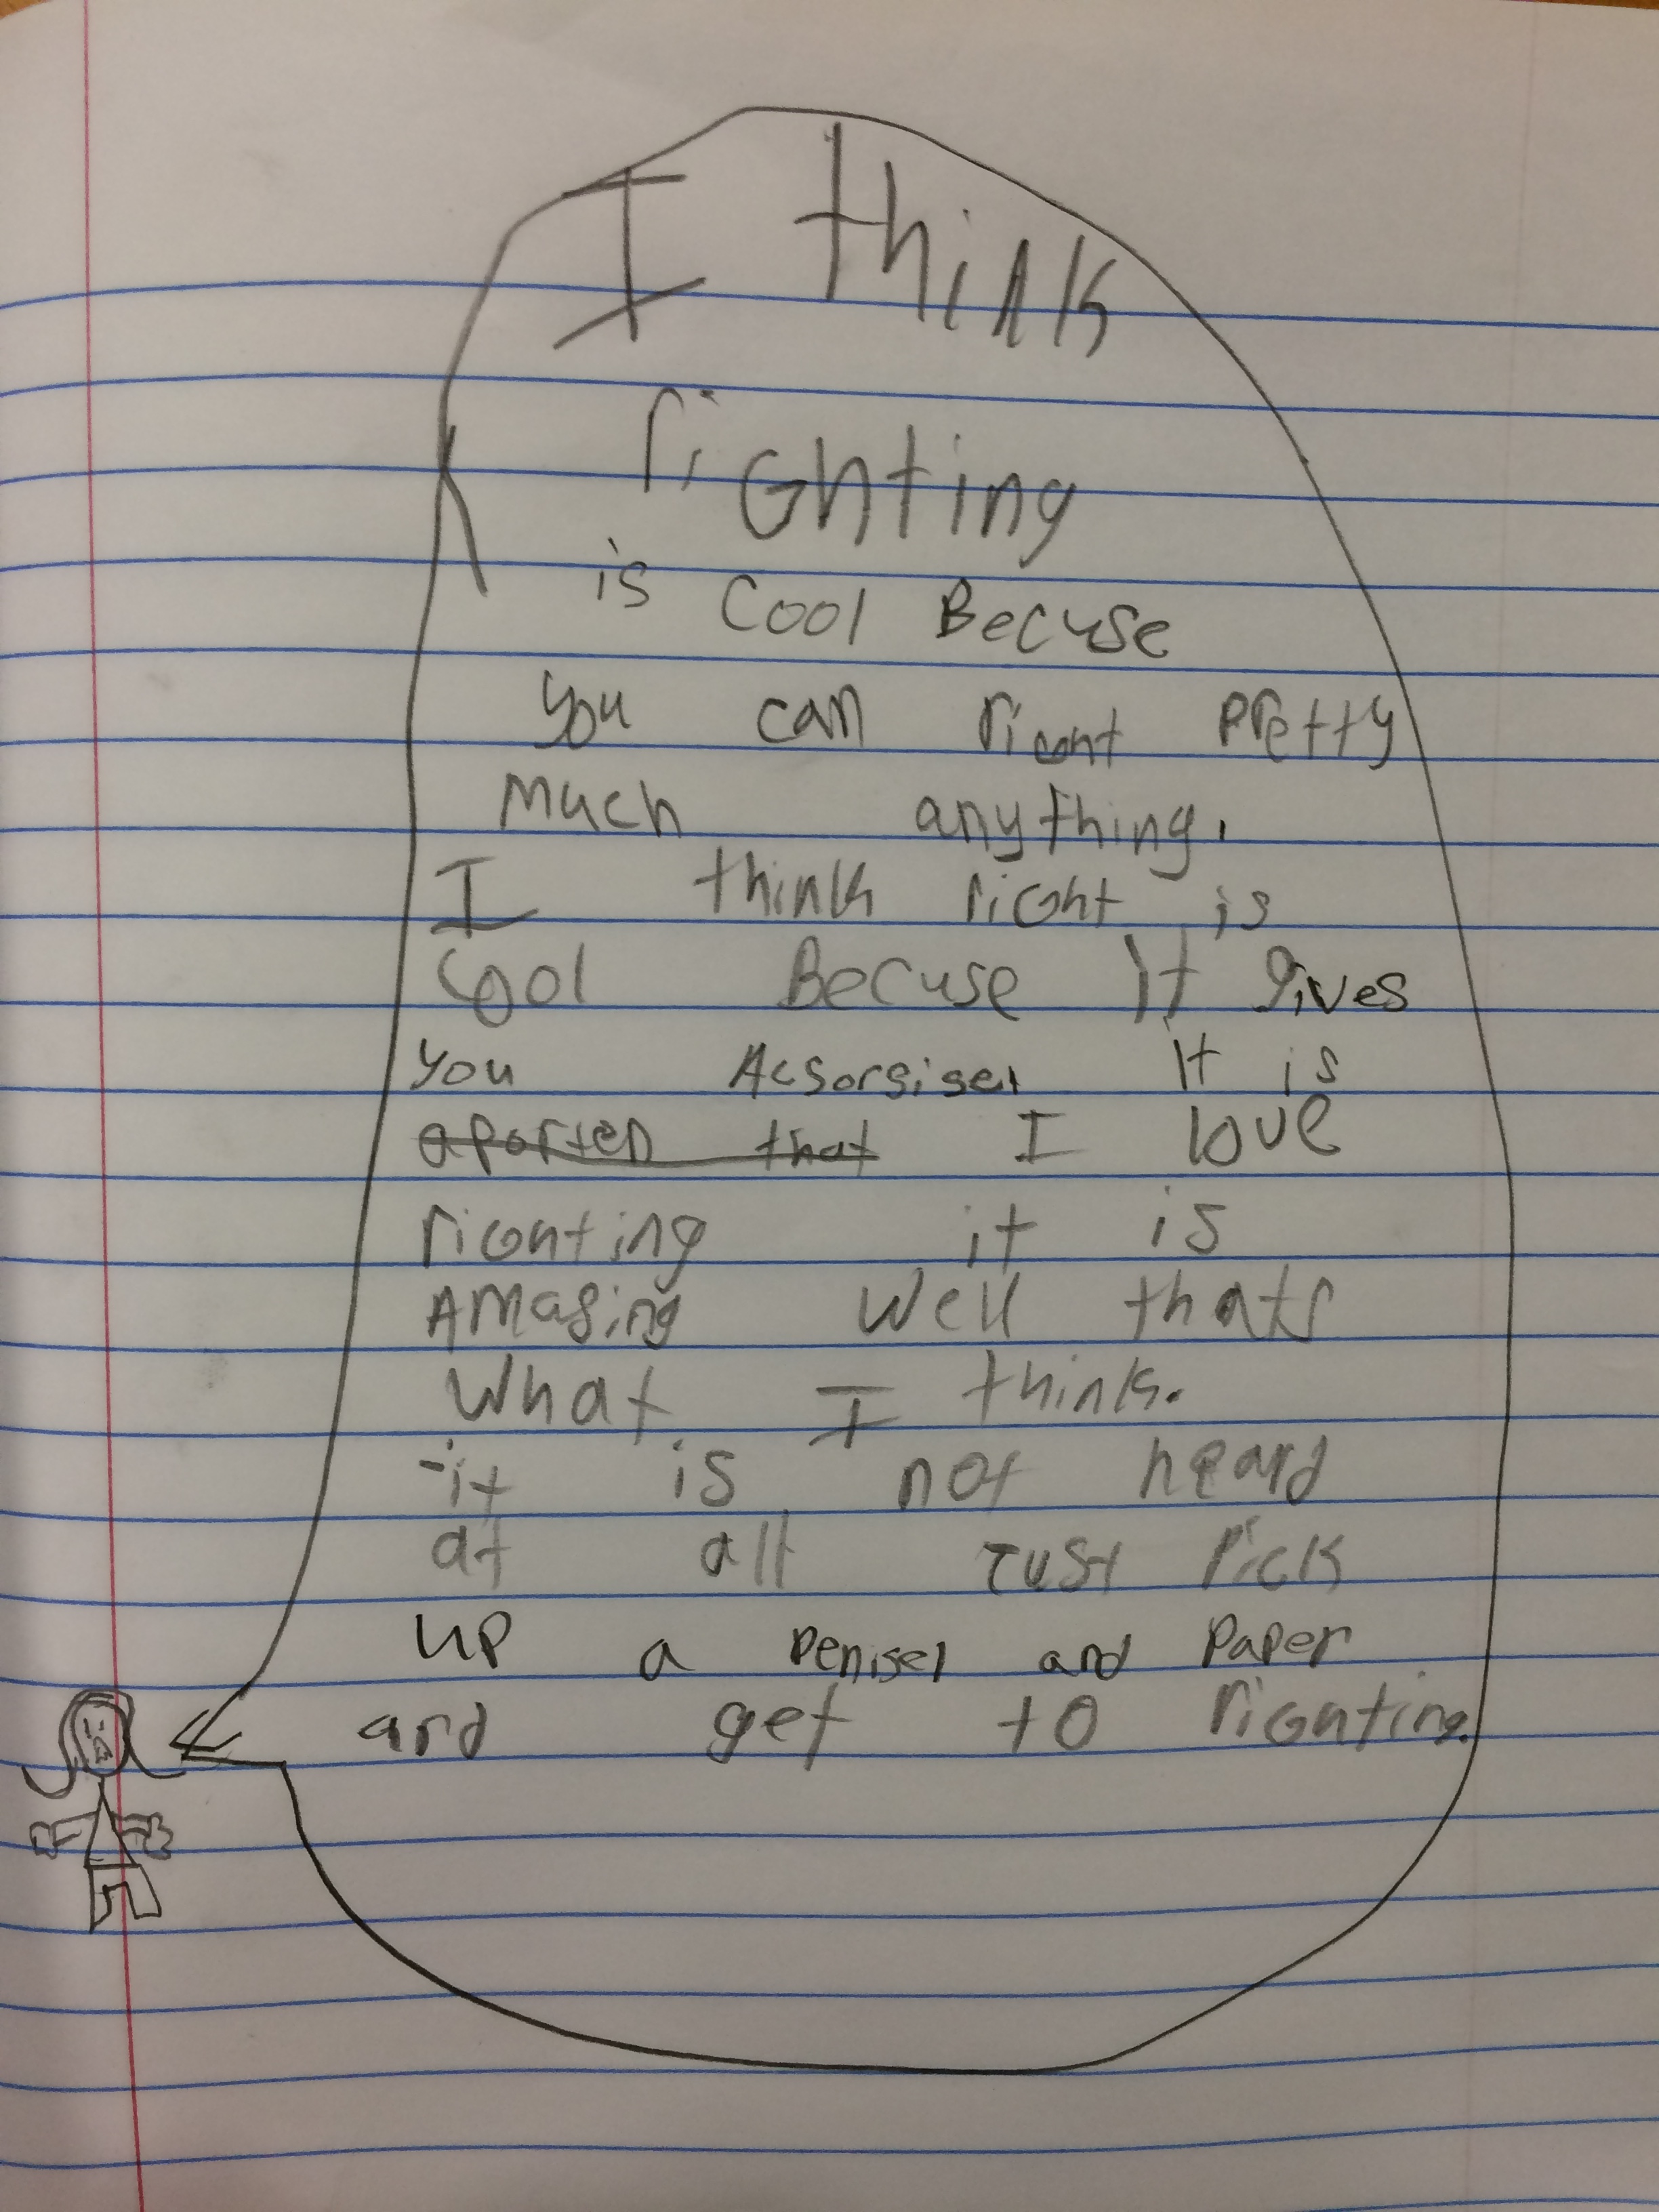 I think
righting
is cool Becuse
you can right pretty
much anything.
I think right is
cool Becuse It gives
you Acsorsise. it is
aporten that I love
righting it is
AMasing well thats
what I think.
it is not heard
at all Just Pick
up a penisel and paper
and get to righting.